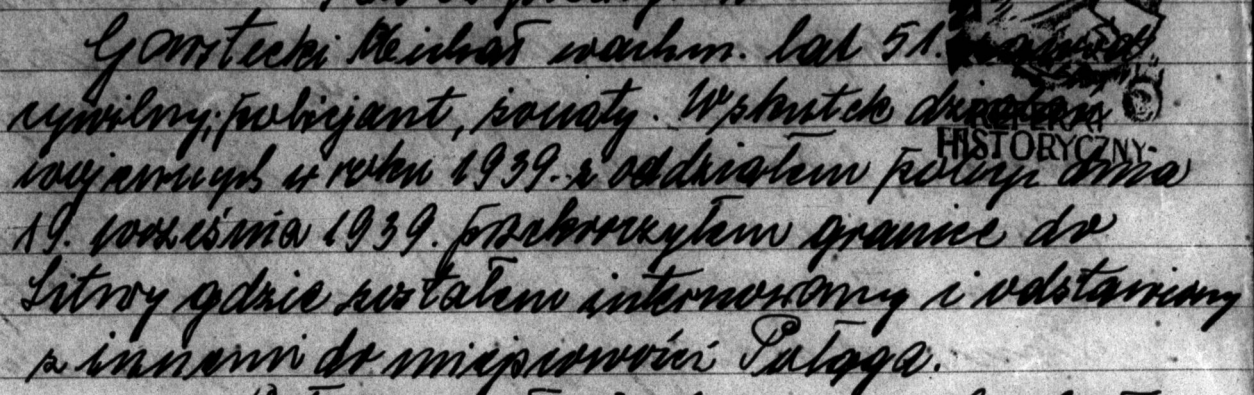 Gawłecki Michał wachm. lat 51. zawód
cywilny; policjant, żonaty. Wskutek działań
HISTORYCZNY
wojennych w roku 1939. z oddziałem policji dnia
19. września 1939. przekroczyłem granice do
Litwy gdzie zostałem internowany i odstawiony
z innemi do miejscowości Połąga.